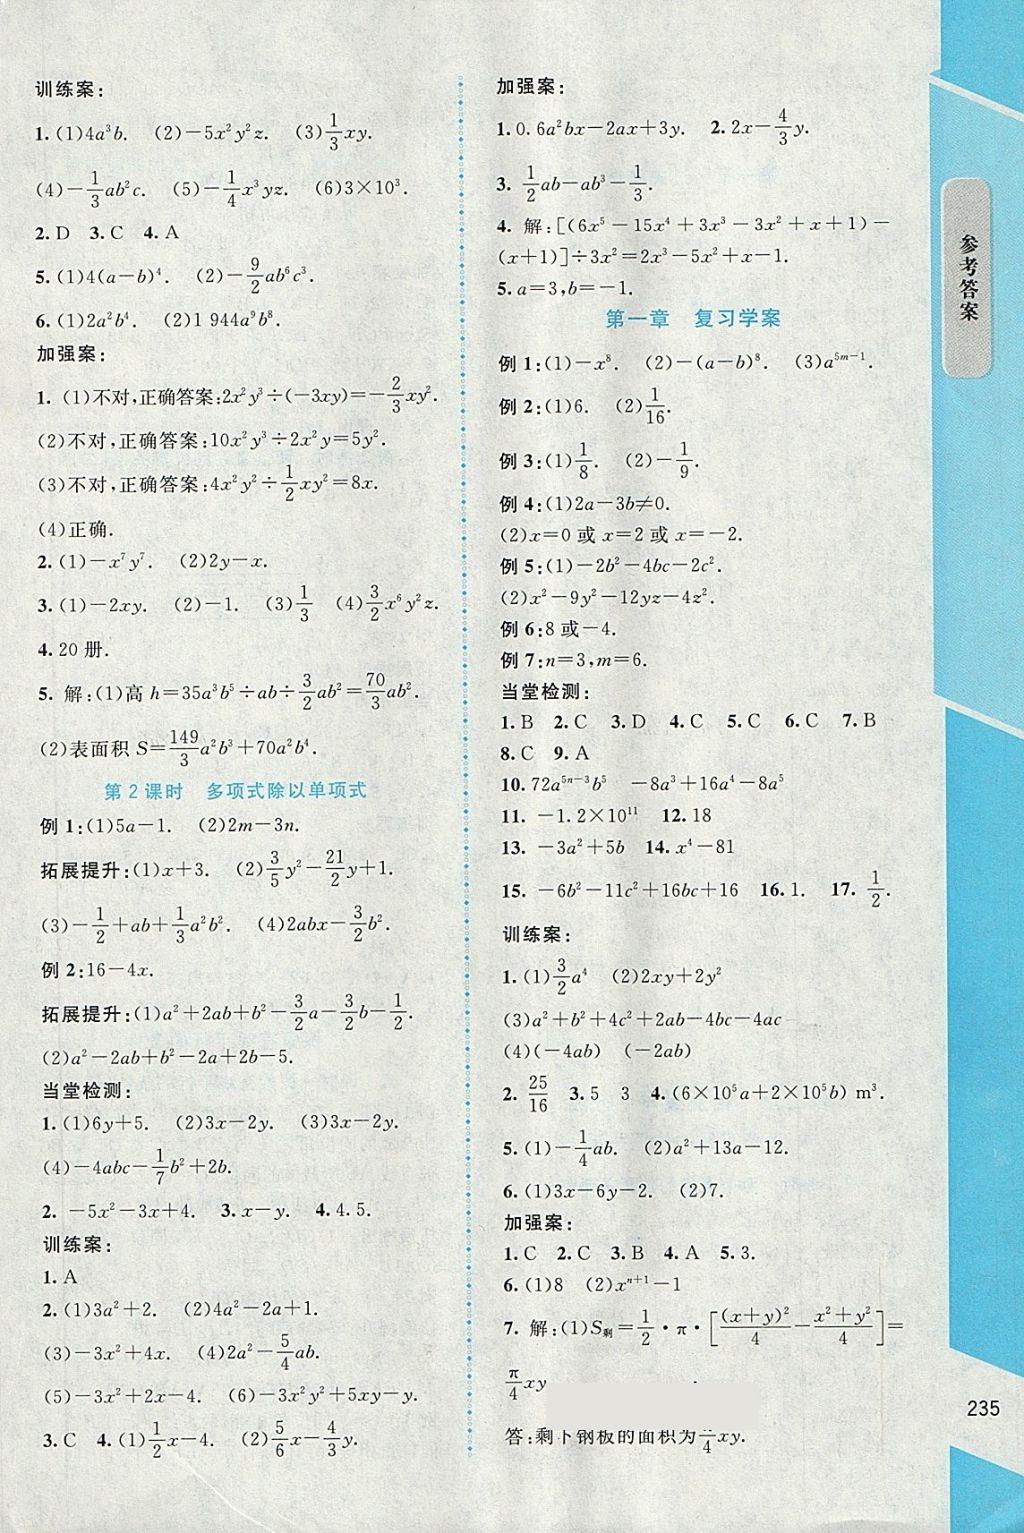 训练案:
1. (1)4a³b. (2)−5x²y²z. (3)1/3xy.
(4)−1/3ab²c. (5)−1/4x³yz. (6)3×10³.
2. D 3. C 4. A
5. (1)4(a−b)⁴. (2)−9/2ab⁶c³.
6. (1)2a²b⁴. (2)1 944a⁹b⁸.
加强案:
1. (1)不对,正确答案:2x²y³÷(−3xy)=−2/3xy².
(2)不对,正确答案:10x²y³÷2x²y=5y².
(3)不对,正确答案:4x²y²÷1/2xy²=8x.
(4)正确.
2. (1)−x⁷y⁷. (2)2y−x.
3. (1)−2xy. (2)−1. (3)1/3 (4)3/2x⁶y²z.
4. 20 册.
5. 解:(1)高 h=35a³b⁵÷ab÷3/2ab²=70/3ab².
(2)表面积 S=149/3a²b³+70a²b⁴.
第 2 课时 多项式除以单项式
例 1:(1)5a−1. (2)2m−3n.
拓展提升:(1)x+3. (2)3/5y²−21/2y+1.
(3)−1/2+ab+1/3a²b². (4)2abx−3/2b².
例 2:16−4x.
拓展提升:(1)a²+2ab+b²−3/2a−3/2b−1/2.
(2)a²−2ab+b²−2a+2b−5.
当堂检测:
1. (1)6y+5. (2)3x−2y. (3)3x−2y.
(4)−4abc−1/7b²+2b.
2. −5x²−3x+4. 3. x−y. 4. 4.5.
训练案:
1. A
2. (1)3a²+2. (2)4a²−2a+1.
(3)−3x²+4x. (4)2a²−5/4ab.
(5)−3x²+2x−4. (6)−3x²y²+5xy−y.
3. C 4. (1)1/2x−4. (2)5/6x−4/3y.
加强案:
1. 0.6a²bx−2ax+3y. 2. 2x−4/3y.
3. 1/2ab−ab³−1/3.
4. 解:[(6x⁵−15x⁴+3x³−3x²+x+1)−
(x+1)]÷3x²=2x³−5x²+x−1.
5. a=3,b=−1.
第一章 复习学案
例 1:(1)−x⁸. (2)−(a−b)⁸. (3)a⁵ᵐ⁻¹.
例 2:(1)6. (2)1/16.
例 3:(1)1/8. (2)−1/9.
例 4:(1)2a−3b≠0.
(2)x=0 或 x=2 或 x=−2.
例 5:(1)−2b²−4bc−2c².
(2)x²−9y²−12yz−4z².
例 6:8 或−4.
例 7:n=3,m=6.
当堂检测:
1. B 2. C 3. D 4. C 5. C 6. C 7. B
8. C 9. A
10. 72a⁵ⁿ⁻³b⁵ −8a³+16a⁴−8a²
11. −1.2×10¹¹ 12. 18
13. −3a²+5b 14. x⁴−81
15. −6b²−11c²+16bc+16 16. 1. 17. 1/2.
训练案:
1. (1)3/2a⁴ (2)2xy+2y²
(3)a²+b²+4c²+2ab−4bc−4ac
(4)(−4ab) (−2ab)
2. 25/16 3. 5 3 4. (6×10⁵a+2×10⁵b) m³.
5. (1)−1/4ab. (2)a²+13a−12.
6. (1)3x−6y−2. (2)7.
加强案:
1. C 2. C 3. B 4. A 5. 3.
6. (1)8 (2)xⁿ⁺¹−1
7. 解:(1)S剩=1/2·π·[(x+y)²/4−x²+y²/4]=
π/4xy
答:剩下钢板的面积为π/4xy.
参考答案
235